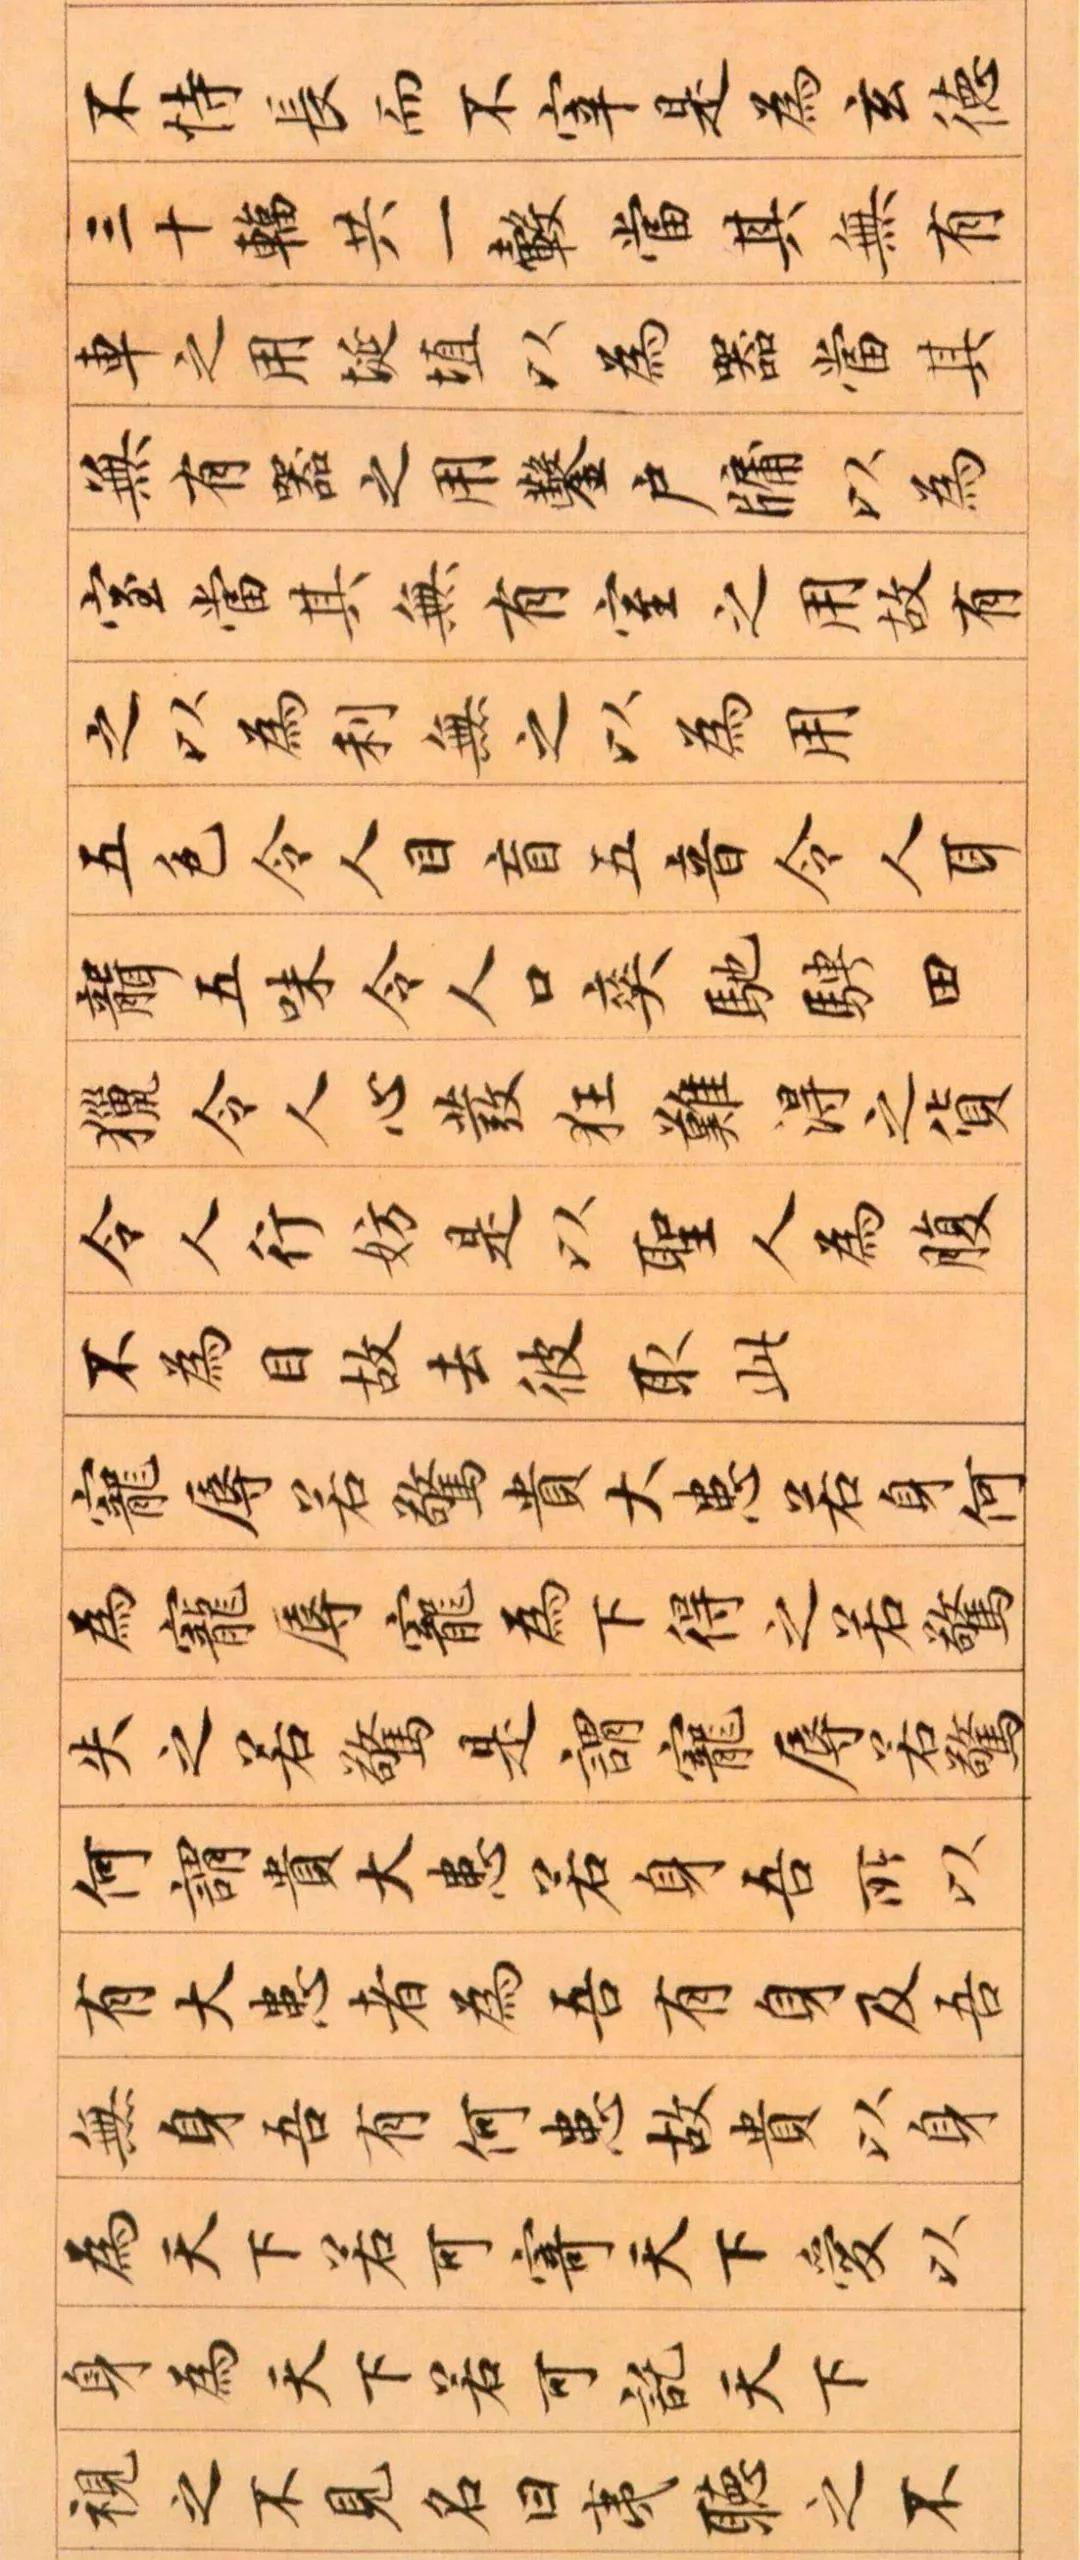 不恃長而不宰是為玄德
三十輻共一轂當其無有
車之用埏埴以為器當其
無有器之用鑿戶牖以為
室當其無有室之用故有
之以為利無之以為用
五色令人目盲五音令人耳
聾五味令人口爽馳騁田
獵令人心發狂難得之貨
令人行妨是以聖人為腹
不為目故去彼取此
寵辱若驚貴大患若身何
為寵辱寵為下得之若驚
失之若驚是謂寵辱若驚
何謂貴大患若身吾所以
有大患者為吾有身及吾
無身吾有何患故貴以身
為天下若可寄天下愛以
身為天下若可託天下
視之不見名曰夷聽之不